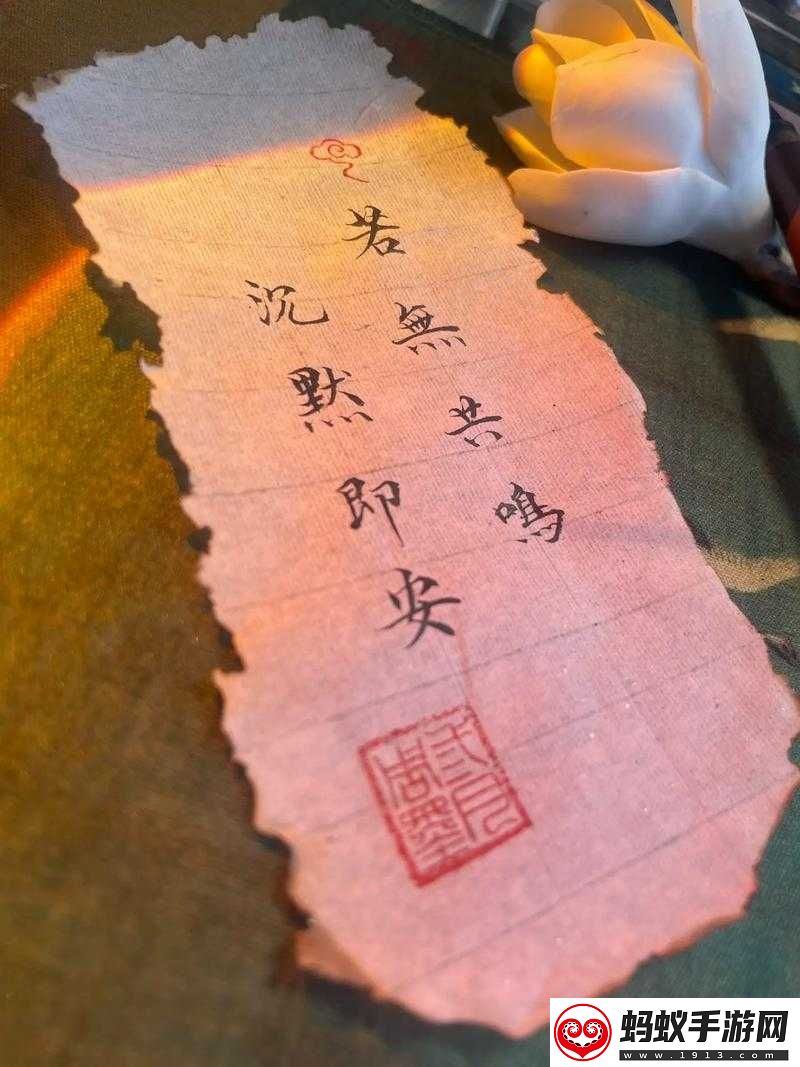 若無共鳴
沉默即安
蚂蚁手游网
www.1913.com